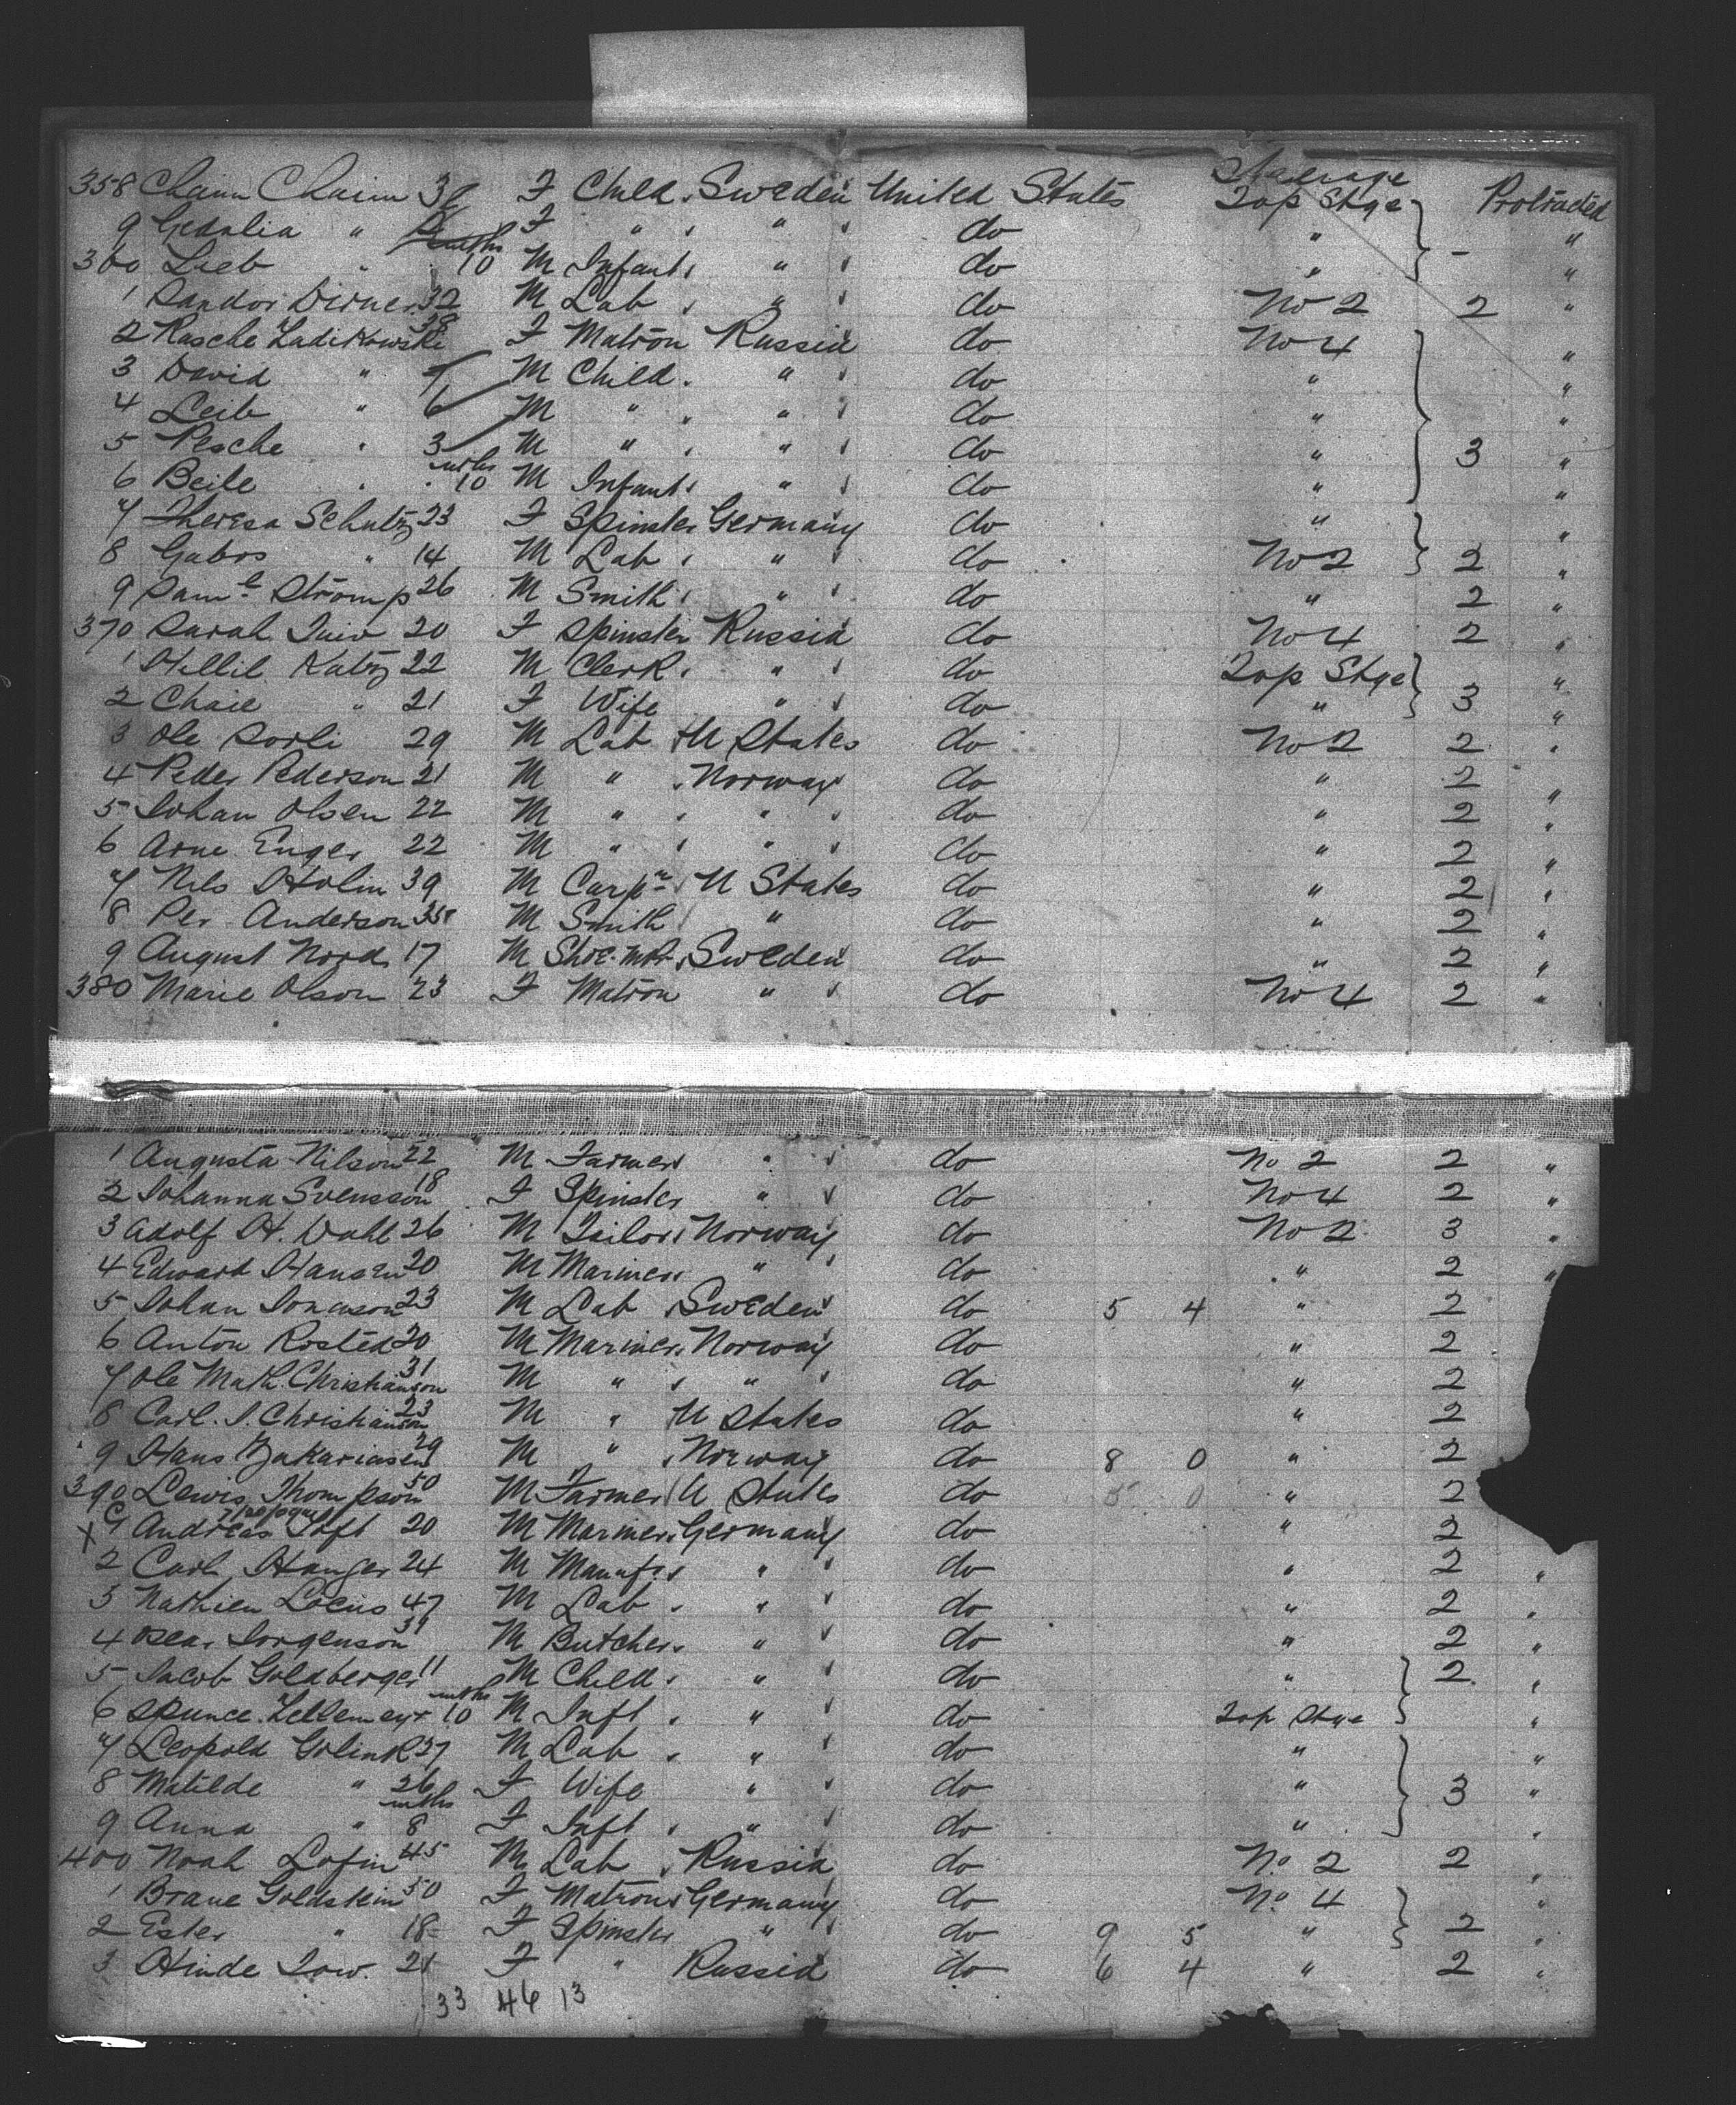 Steerage
358 Chaim Chaim 3 F Child Sweden United States Top Stge Protracted
9 Gedalia " F " " do " "
360 Lieb " mths 10 M Infant " do " - "
1 Sandor Dirner 32 M Lab " do No 2 2 "
2 Rasche Ladikowski 38 F Matron Russia do No 4 "
3 David " 7 M Child " do " "
4 Leib " 6 M " " do " "
5 Pesche " 3 M " " do " 3 "
6 Beile " mths 10 M Infant " do " "
7 Theresa Schultz 23 F Spinster Germany do " "
8 Gabos " 14 M Lab " do No 2 2 "
9 Saml Stromp 26 M Smith " do " 2 "
370 Sarah 20 F Spinster Russia do No 4 2 "
1 Hillil Katz 22 M Clerk " do Top Stge "
2 Chaie " 21 F Wife " do " 3 "
3 Ole Sorli 29 M Lab U States do No 2 2 "
4 Peder Pederson 21 M " Norway do " 2
5 Johan Olsen 22 M " " do " 2 "
6 Arne Enger 22 M " " do " 2 "
7 Nils Holm 39 M Carpr U States do " 2 "
8 Per Anderson 35 M Smith " do " 2 "
9 August Nord 17 M Shoe-mkr Sweden do " 2 "
380 Marie Olson 23 F Matron " do No 4 2 "
1 Augusta Nilson 22 M Farmer " do No 2 2 "
2 Johanna Svensson 18 F Spinster " do No 4 2 "
3 Adolf H. Dahl 26 M Tailor Norway do No 2 3 "
4 Edward Hansen 20 M Mariner " do " 2 "
5 Johan Jonasson 23 M Lab Sweden do 5 4 " 2
6 Anton Rosted 20 M Mariner Norway do " 2
7 Ole Math. Christianson 31 M " " do " 2
8 Carl. J. Christianson 23 M " U States do " 2
9 Hans Zakariasen 29 M " Norway do 8 0 " 2
390 Lewis Thompson 50 M Farmer U States do 5 0 " 2
X 1 Andreas Toft 20 M Mariner Germany do " 2
2 Carl Hanger 24 M Manufr " do " 2 "
3 Nathien Locus 47 M Lab " do " 2 "
4 Oscar Jorgenson 39 M Butcher " do " 2 "
5 Jacob Goldberger 11 M Child " do " 2 "
6 mths 10 M Inft " do Top Stge "
7 Leopold Golink 27 M Lab " do " "
8 Matilde " 26 F Wife " do " 3 "
9 Anna " mths 8 F Inft " do " "
400 Noah Lofin 45 M Lab Russia do No 2 2 "
1 Brane Goldstein 50 F Matron Germany do No 4 "
2 Ester " 18 F Spinster " do 9 5 " 2 "
3 Hinde Low 21 F " Russia do 6 4 " 2 "
33 46 13